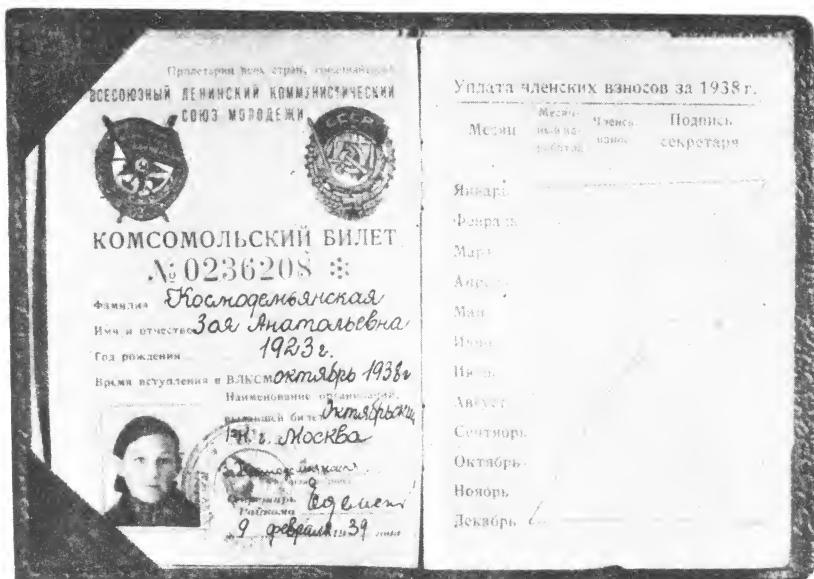 Пролетарии всех стран, соединяйтесь!
ВСЕСОЮЗНЫЙ ЛЕНИНСКИЙ КОММУНИСТИЧЕСКИЙ
СОЮЗ МОЛОДЕЖИ
СССР
КОМСОМОЛЬСКИЙ БИЛЕТ
№ 0236208
Фамилия Космодемьянская
Имя и отчество Зоя Анатольевна
Год рождения 1923 г.
Время вступления в ВЛКСМ октябрь 1938 г
Наименование организации,
выдавшей билет Октябрьский
РК г. Москва
Секретарь
Райкома
9 февраля 1939 года
Уплата членских взносов за 1938 г.
Месяц Месяч-ный за-работок Членск. взнос Подпись секретаря
Январь
Февраль
Март
Апрель
Май
Июнь
Июль
Август
Сентябрь
Октябрь
Ноябрь
Декабрь